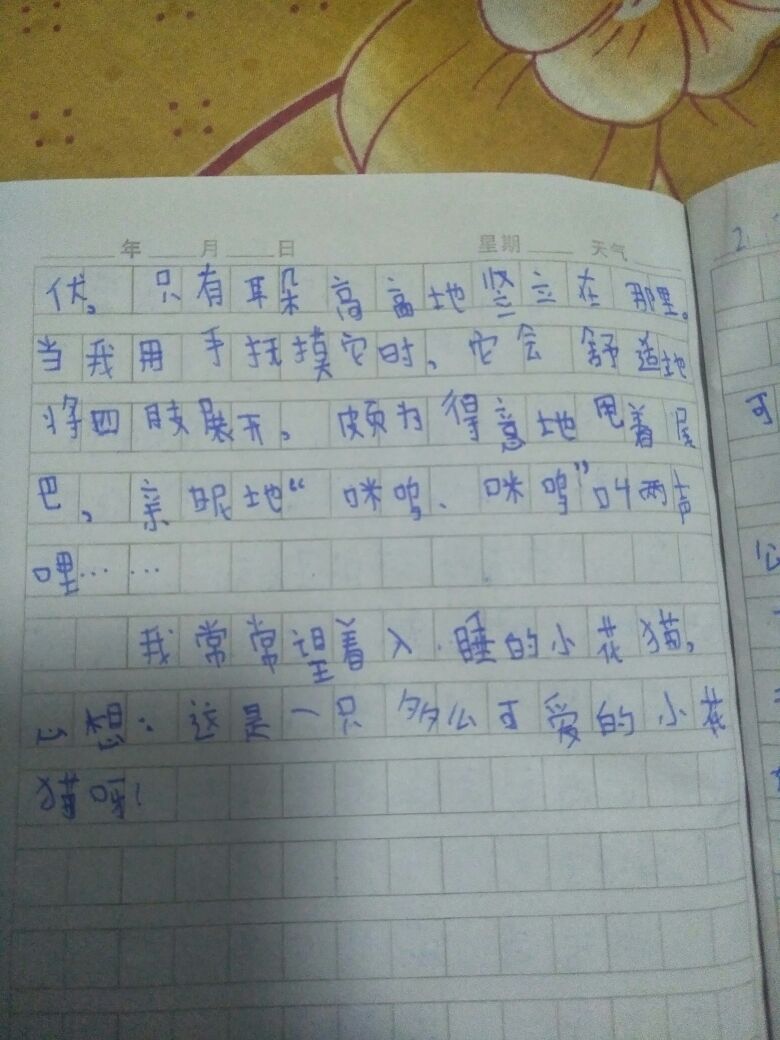 年 月 日 星期 天气
伏，只有耳朵高高地竖立在那里。
当我用手抚摸它时，它会舒适地
将四肢展开，颇为得意地甩着尾
巴，亲昵地“咪呜、咪呜”叫两声
哩……
我常常望着入睡的小花猫，
心想：这是一只多么可爱的小花
猫呀！
2.
可